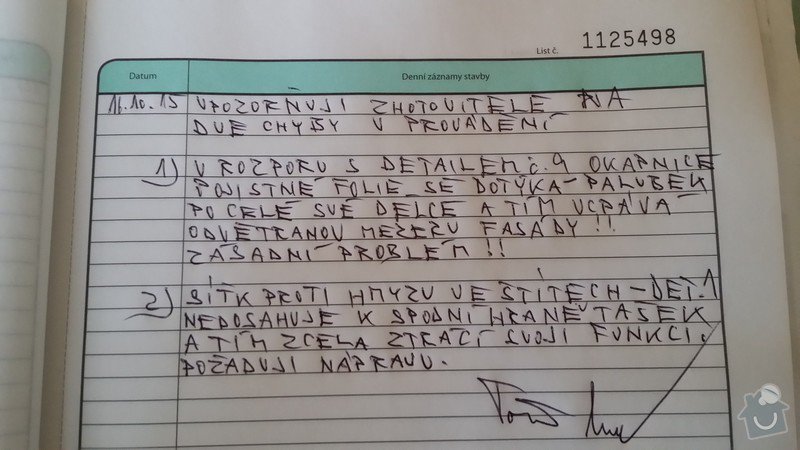 List č. 1125498
Datum Denní záznamy stavby
16.10.15 UPOZORŇUJI ZHOTOVITELE NA
DVE CHYBY V PROVÁDĚNÍ
1) V ROZPORU S DETAILEM č. 9 OKAPNICE
POJISTNÉ FOLIE SE DOTÝKA PALUBEK
PO CELÉ SVÉ DÉLCE A TÍM UCPÁVÁ
ODVĚTRANOU MEZERU FASÁDY!!
ZÁSADNÍ PROBLÉM!!
2) SÍTK PROTI HMYZU VE ŠTÍTECH - DET. 1
NEDOSAHUJE K SPODNÍ HRANĚ TAŠEK
A TÍM ZCELA ZTRÁCÍ SVOJI FUNKCI.
POŽADUJI NÁPRAVU.